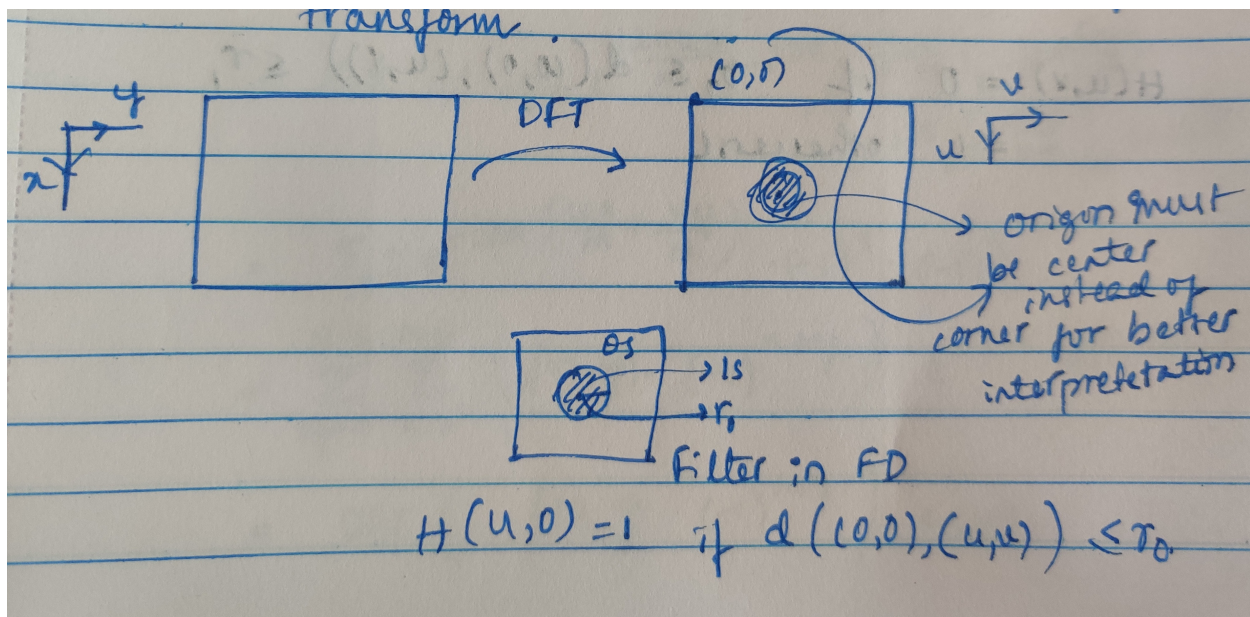 transform.
(0,0)
y
DFT
v
x
u
origin must
be center
instead of
corner for better
interpretetation
0s
1s
r0
Filter in FD
H(u,0) = 1 if d((0,0),(u,v)) ≤ r0.